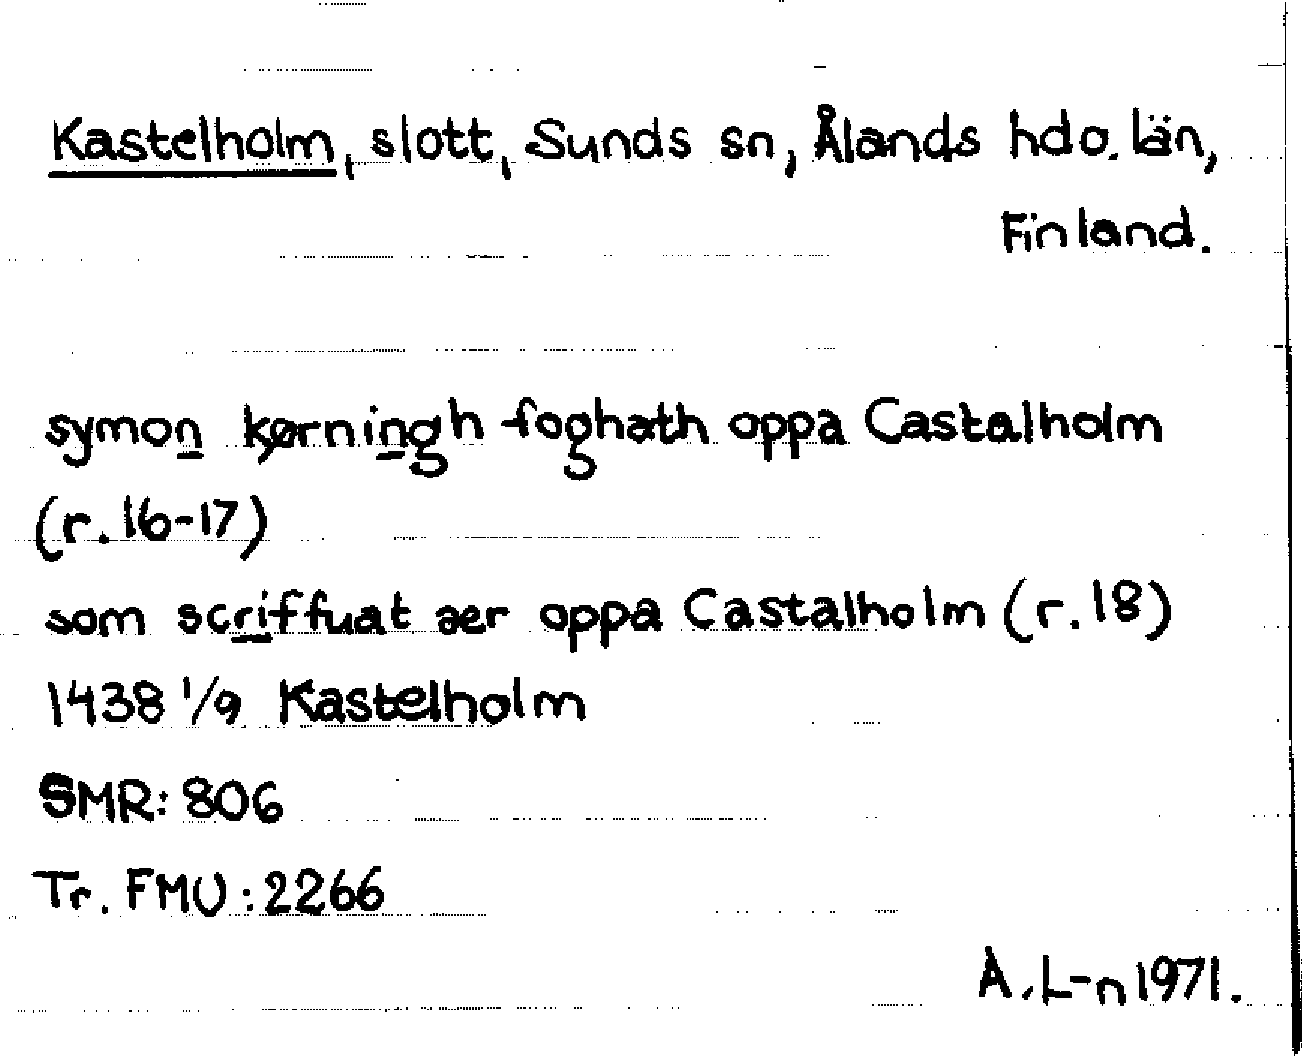 Kastelholm, slott, Sunds sn, Ålands hdo. län,
Finland.
symon kørningh foghath oppa Castalholm
(r. 16-17)
som scriffuat aer oppa Castalholm (r. 18)
1438 1/9 Kastelholm
SMR: 806
Tr. FMU: 2266
A. L-n 1971.